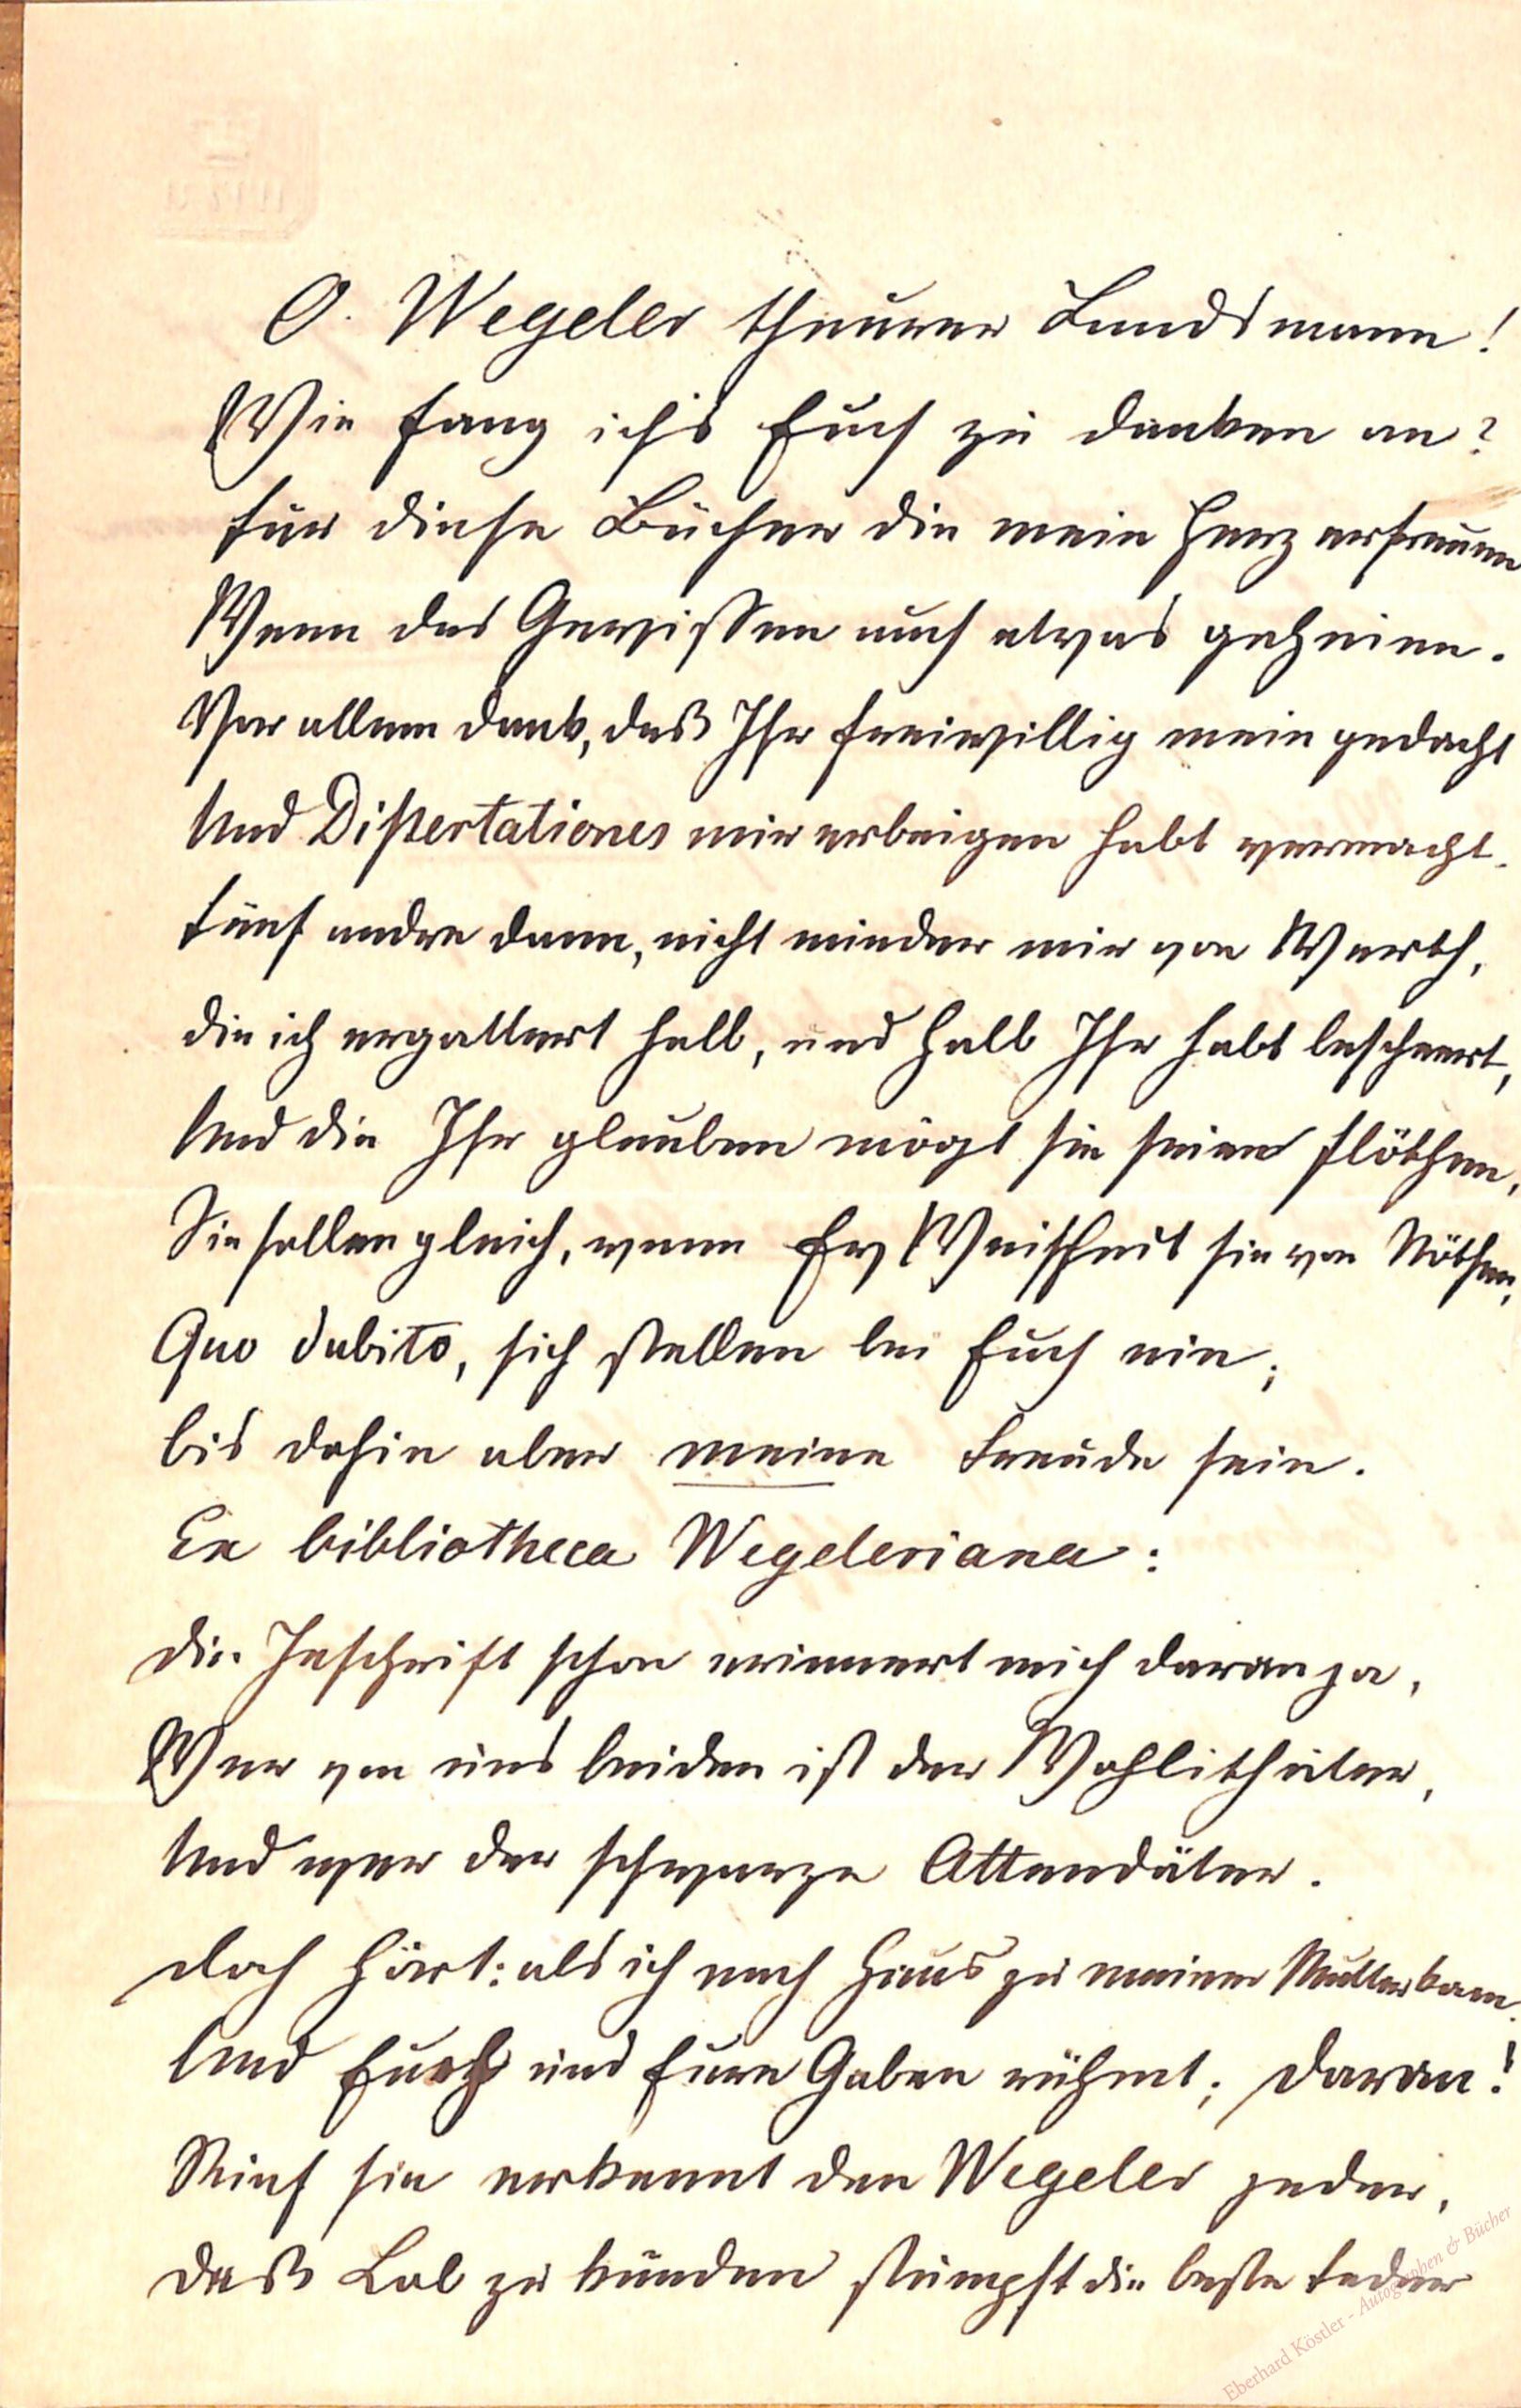 O. Wegeler theurer Landsmann!
Wie fang ich's Euch zu danken an?
für diese Bücher die mein Herz erfreuen
Wenn das Gewissen auch etwas geheim.
Vor allem dank, daß Ihr freiwillig mein gedacht
Und Dißertationes mir erbeigen habt vermacht.
fünf andre dann, nicht minder mir von Werth,
die ich ergattert halb, und halb Ihr habt bescheert,
Und die Ihr glauben mögt sie seien flöthen,
Sie sollen gleich, wenn Ew Weisheit sie von Nöthen,
Quo dubito, sich stellen bei Euch ein;
bis dahin aber meine Freude sein.
Ex bibliotheca Wegeleriana:
die Inschrift schon erinnert mich daran ja,
Wer von uns beiden ist der Wohlithäter,
Und wer der schwarze Attendäter.
doch hört: als ich nach Haus zu meiner Mutter kam
Und Euch und Eure Gaben rühmt; daran!
Rief sie erkennt den Wegeler jeder,
daß Lob zu künden stumpft die beste Feder
Eberhard Köstler - Autographen & Bücher